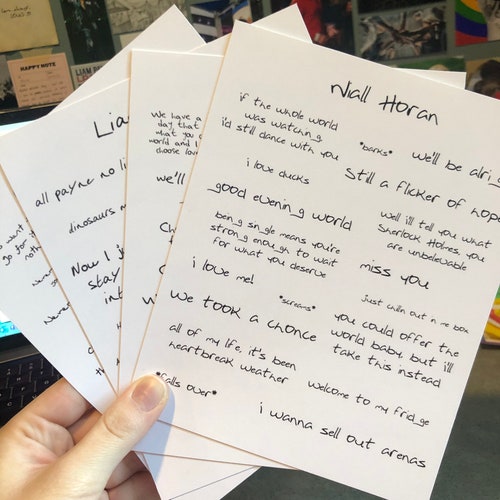 HAPPY NOTE
LIAM
Niall Horan
if the whole world
was watchin_g
i'd still dance with you
*barks*
we'll be alri_g
i love chucks
Still a flicker of hope
_good evenin_g world
well ill tell you what
Sherlock Holmes, you
are unbelevable
bein_g sin_gle means you're
stron_g enou_gh to wait
for what you deserve
miss you
i love me!
*screams*
just chillin out in me box
we took a chonce
you could offer the
world baby, but i'll
take this instead
all of my life, it's been
heartbreak weather
welcome to my frid_ge
*falls over*
i wanna sell out arenas
We have a
day that
what you
world and I
choose lov
we'll
Lia
all payne no li
dinosaurs
Now I j
stay
int